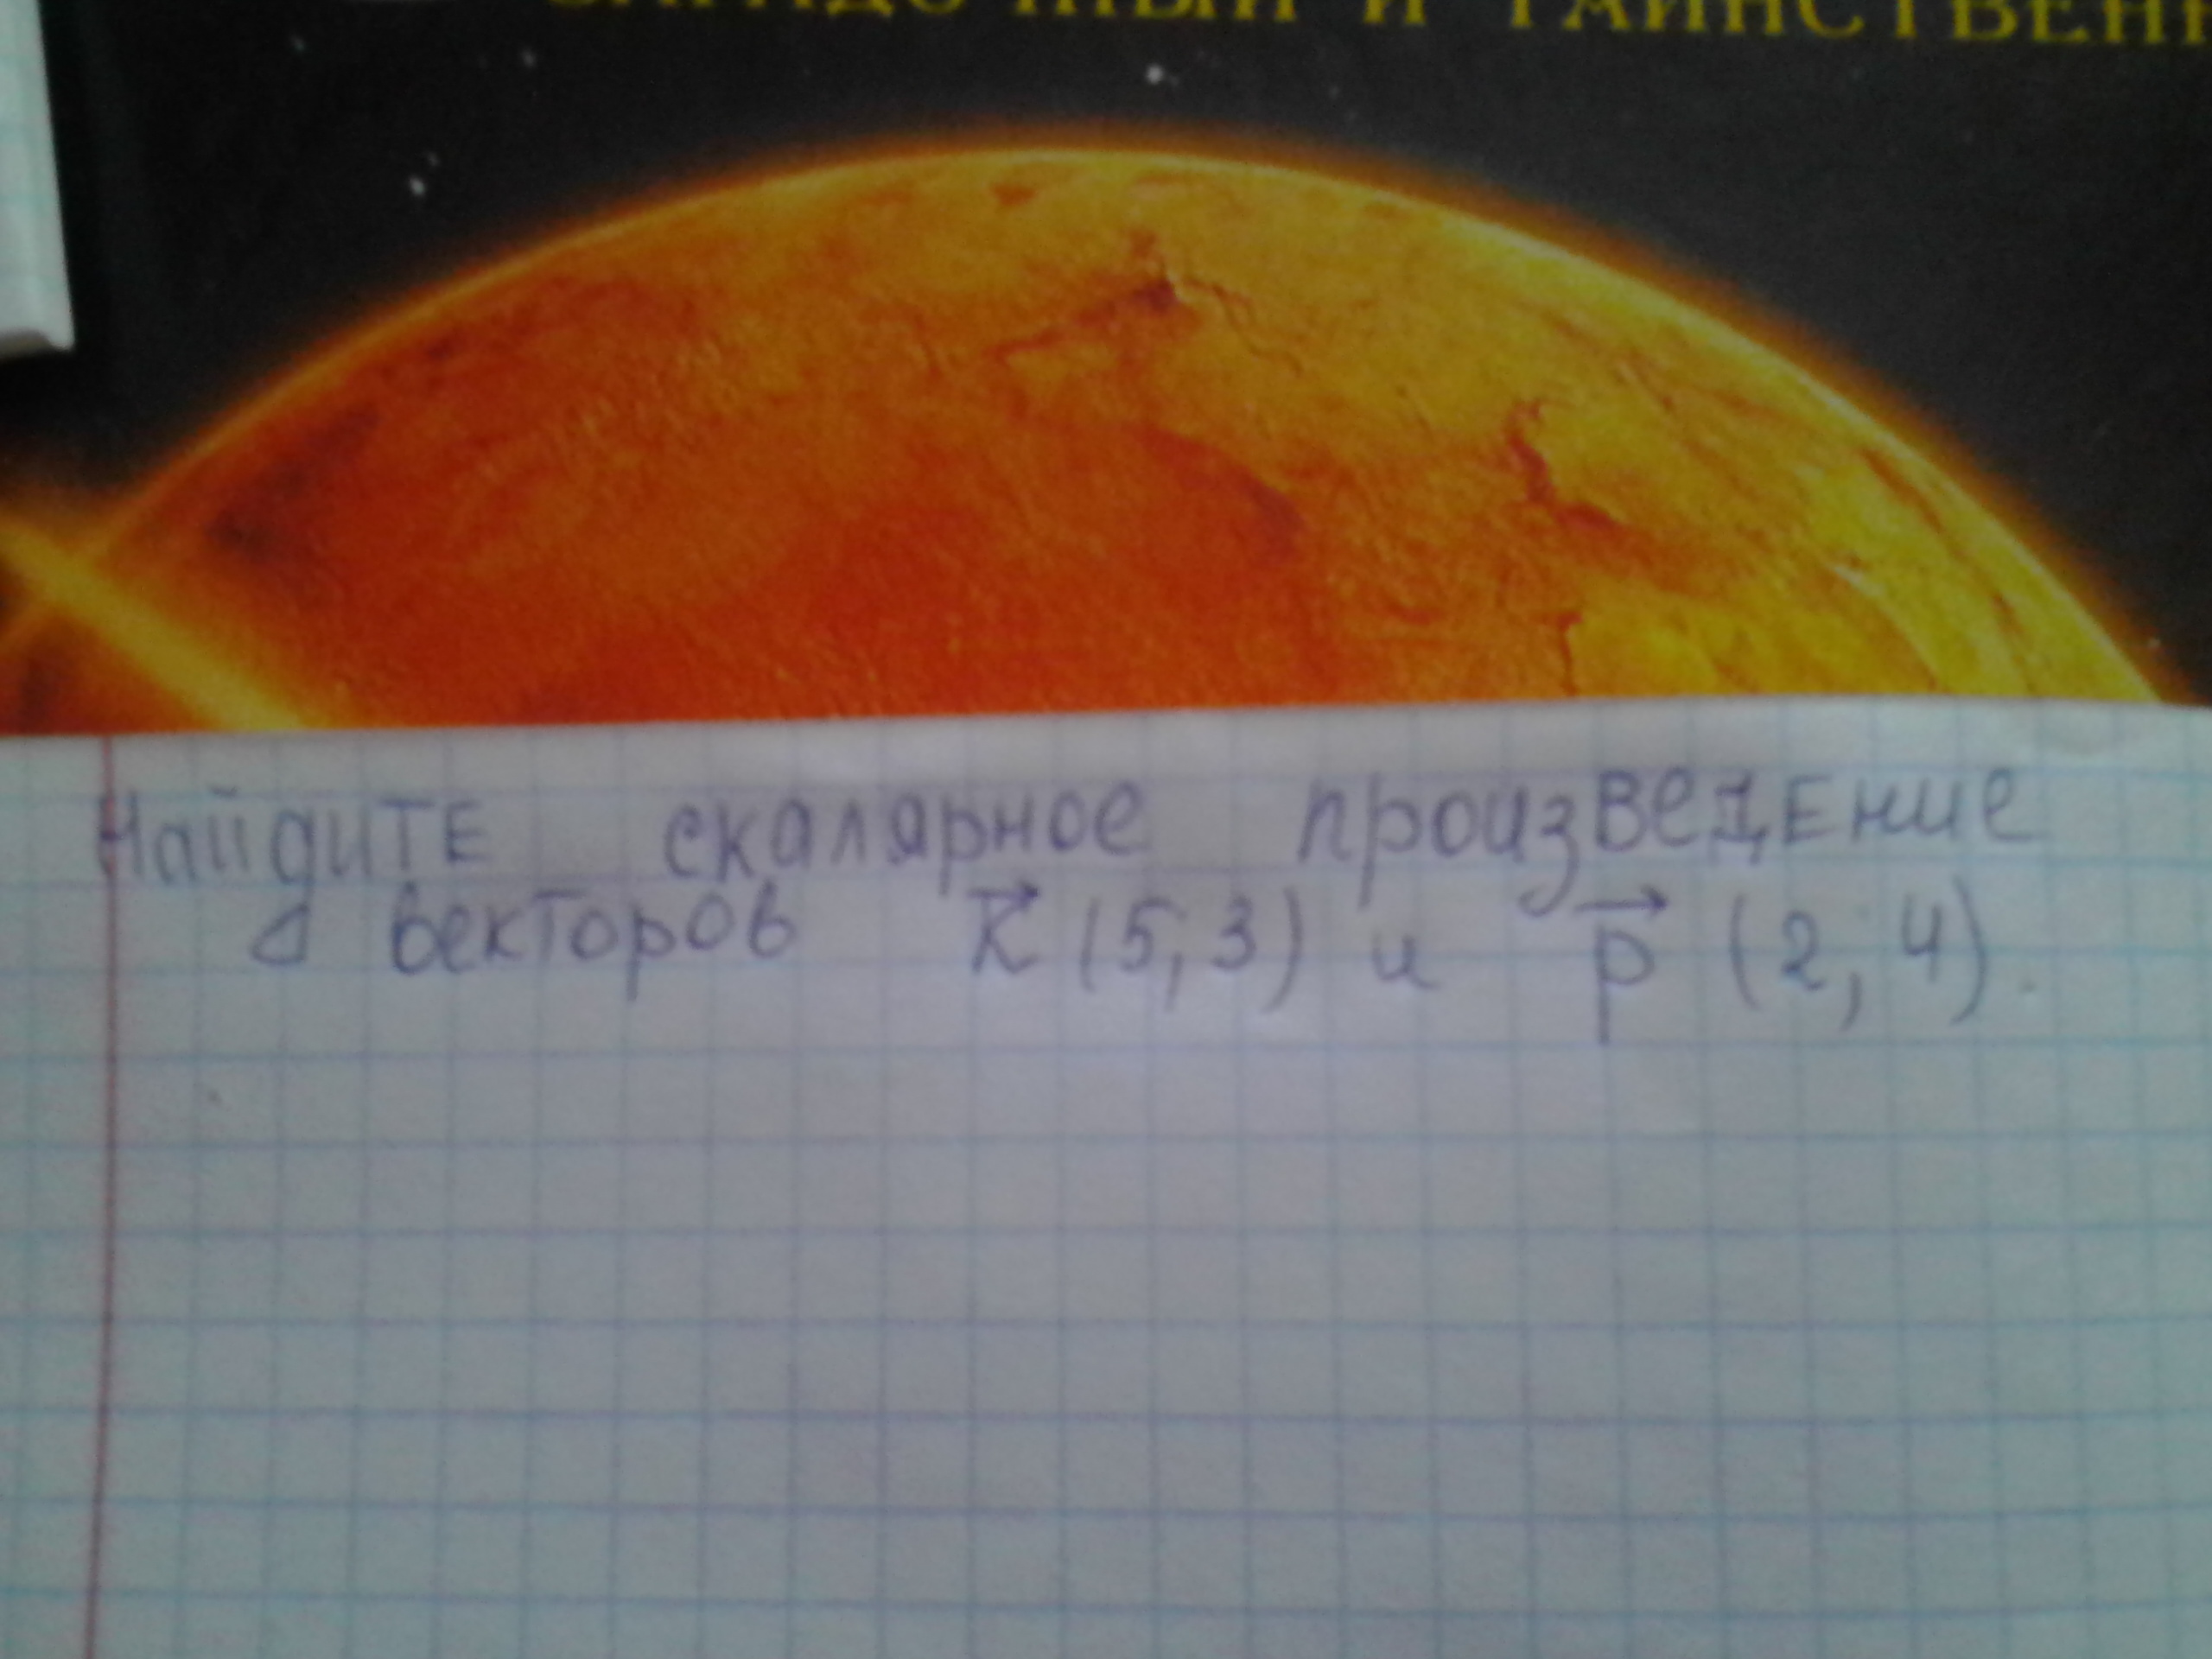 ЗАГАДОЧНЫЙ И ТАИНСТВЕНН
Найдите скалярное произведение
векторов k⃗ (5, 3) и p⃗ (2, 4).